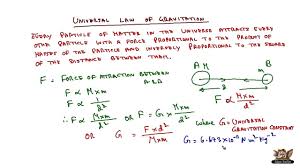 UNIVERSAL LAW OF GRAVITATION
EVERY PARTICLE OF MATTER IN THE UNIVERSE ATTRACTS EVERY
OTHER PARTICLE WITH A FORCE PROPORTIONAL TO THE PRODUCT OF
MASSES OF THE PARTICLE AND INVERSELY PROPORTIONAL TO THE SQUARE
OF THE DISTANCE BETWEEN THEM.
F = FORCE OF ATTRACTION BETWEEN
A & B
A M m B
F ∝ M×m
d
F ∝ 1/d²
F ∝ M×m/d²
∴ F ∝ M×m/d² OR F = G × M×m/d²
WHERE G = UNIVERSAL
GRAVITATION CONSTANT
OR G = F×d²/M×m
G = 6.673×10⁻¹¹ N m² kg⁻²